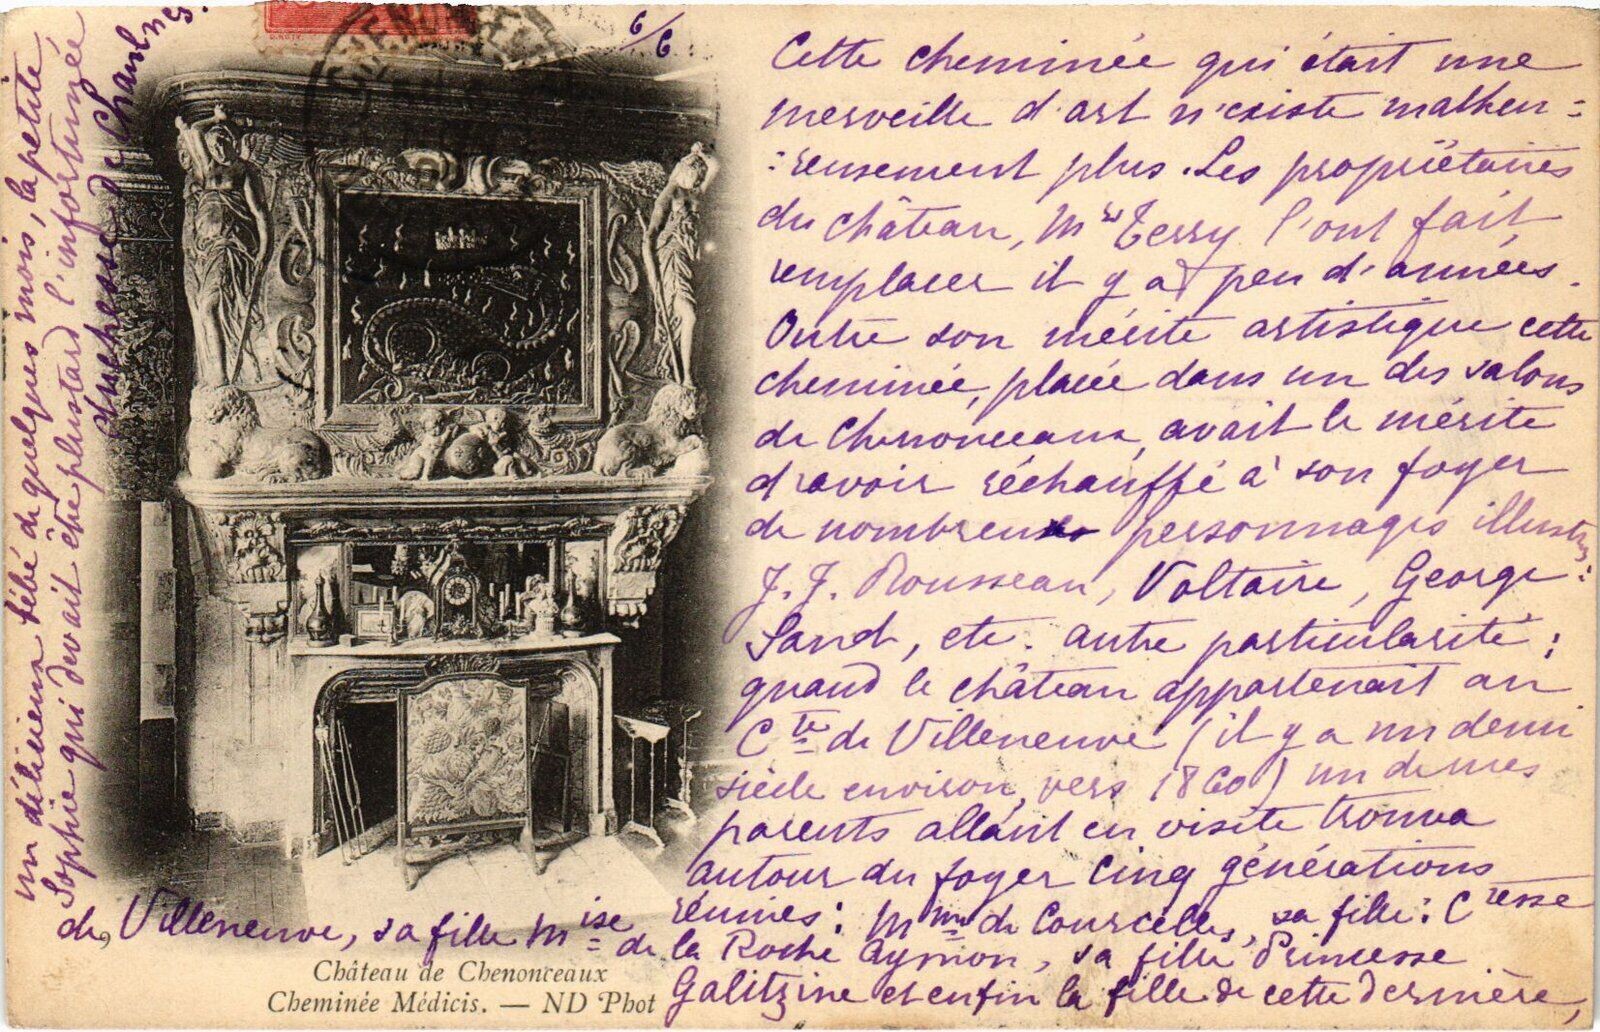 Cette cheminée qui était une
merveille d'art n'existe malheu=
=reusement plus. Les propriétaires
du château, Mrs Terry l'ont fait
remplacer il y a peu d'années.
Outre son mérite artistique cette
cheminée, placée dans un des salons
de Chenonceaux, avait le mérite
d'avoir réchauffé à son foyer
de nombreux personnages illustres
J. J. Rousseau, Voltaire, George
Sand, etc. autre particularité:
quand le château appartenait au
Cte de Villeneuve (il y a un demi
siècle environ, vers 1860) un de mes
parents allant en visite trouva
autour du foyer cinq générations
réunies: Mme de Courcelles, sa fille: Ctesse
de Villeneuve, sa fille Mise de la Roche Aymon, sa fille Princesse
Galitzine et enfin la fille de cette dernière,
un délicieux bébé de quelques mois, la petite
Sophie qui devait être plus tard l'infortunée
duchesse de Chaulnes.
6/6
CHENONCEAUX
Château de Chenonceaux
Cheminée Médicis. — ND Phot